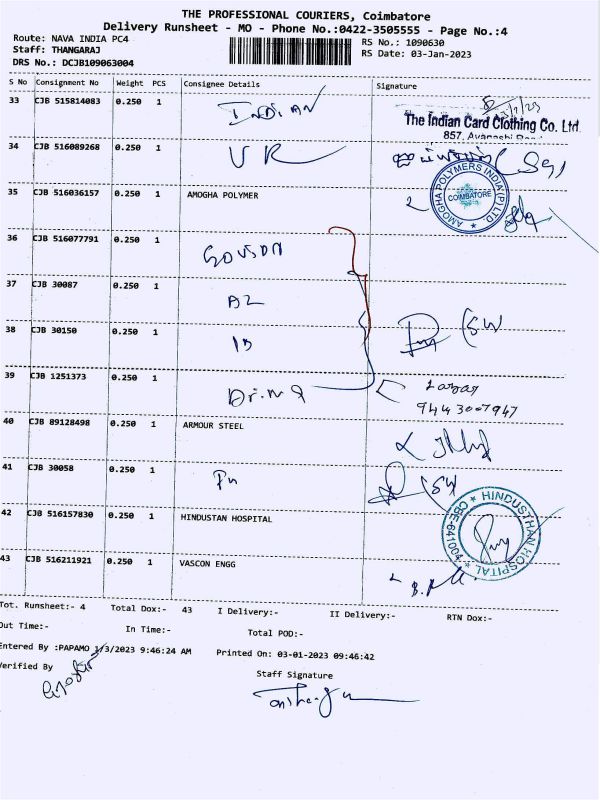 THE PROFESSIONAL COURIERS, Coimbatore
Delivery Runsheet - MO - Phone No.:0422-3505555 - Page No.:4
Route: NAVA INDIA PC4 RS No.: 1090630
Staff: THANGARAJ RS Date: 03-Jan-2023
DRS No.: DCJB109063004
S No Consignment No Weight PCS Consignee Details Signature
33 CJB 515814083 0.250 1 INDIAN
The Indian Card Clothing Co. Ltd.
857, Avanashi Road
34 CJB 516089268 0.250 1 VR
35 CJB 516036157 0.250 1 AMOGHA POLYMER
AMOGHA POLYMERS INDIA (P) LTD
COIMBATORE
36 CJB 516077791 0.250 1
37 CJB 30087 0.250 1
38 CJB 30150 0.250 1
39 CJB 1251373 0.250 1
9443007947
40 CJB 89128498 0.250 1 ARMOUR STEEL
41 CJB 30058 0.250 1
42 CJB 516157830 0.250 1 HINDUSTAN HOSPITAL
HINDUSTHAN HOSPITAL
CBE-641004
43 CJB 516211921 0.250 1 VASCON ENGG
Tot. Runsheet:- 4 Total Dox:- 43 I Delivery:- II Delivery:- RTN Dox:-
Out Time:- In Time:- Total POD:-
Entered By :PAPAMO 1/3/2023 9:46:24 AM Printed On: 03-01-2023 09:46:42
Verified By Staff Signature